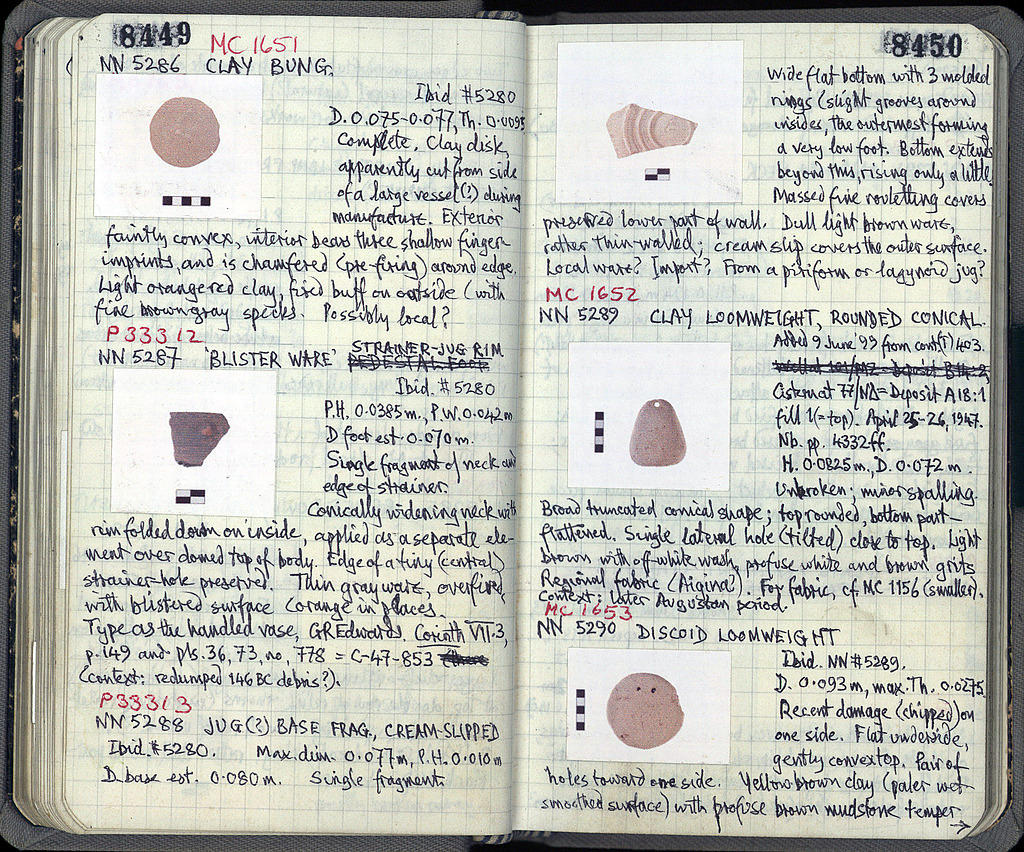 8449
MC 1651
NN 5286 CLAY BUNG.
Ibid #5280
D. 0.075-0.077, Th. 0.0095
Complete. Clay disk,
apparently cut from side
of a large vessel(?) during
manufacture. Exterior
faintly convex, interior bears three shallow finger-
imprints, and is chamfered (pre-firing) around edge.
Light orangered clay, fired buff on outside (with
fine browngray specks. Possibly local?
P33312
NN 5287 'BLISTER WARE' STRAINER-JUG RIM
PEDESTAL FOOT
Ibid. #5280
P.H. 0.0385m., P.W. 0.042m
D foot est. 0.070m.
Single fragment of neck and
edge of strainer.
Conically widening neck with
rim folded down on inside, applied as a separate ele-
ment over domed top of body. Edge of a tiny (central)
strainer-hole preserved. Thin gray ware, overfired,
with blistered surface (orange in places.
Type as the handled vase, GR Edwards, Corinth VII.3,
p. 149 and pls. 36, 73, no. 778 = C-47-853
(context: redumped 146 BC debris?).
P33313
NN 5288 JUG(?) BASE FRAG., CREAM-SLIPPED
Ibid. #5280. Max. dim. 0.077m, P.H. 0.010m
D. base est. 0.080m. Single fragment.
8450
Wide flat bottom with 3 molded
rings (slight grooves around
insides, the outermost forming
a very low foot. Bottom extends
beyond this, rising only a little.
Massed fine rouletting covers
preserved lower part of wall. Dull light brown ware,
rather thin-walled; cream slip covers the outer surface.
Local ware? Import? From a piriform or lagynoid jug?
MC 1652
NN 5289 CLAY LOOMWEIGHT, ROUNDED CONICAL.
Added 9 June '99 from cont(r) 403.
Cistern at 77/ΝΔ = Deposit A18:1
fill 1 (= top). April 25-26, 1947.
Nb. pp. 4332ff.
H. 0.0825m, D. 0.072m.
Unbroken; minor spalling.
Broad truncated conical shape; top rounded, bottom part-
flattened. Single lateral hole (tilted) close to top. Light
brown with off-white wash, profuse white and brown grits
Regional fabric (Aigina?). For fabric, cf. MC 1156 (smaller).
Context: later Augustan period.
MC 1653
NN 5290 DISCOID LOOMWEIGHT
Ibid. NN#5289.
D. 0.093m, max. Th. 0.0275
Recent damage (chipped) on
one side. Flat underside,
gently convex top. Pair of
holes toward one side. Yellow-brown clay (paler wet-
smoothed surface) with profuse brown mudstone temper
→